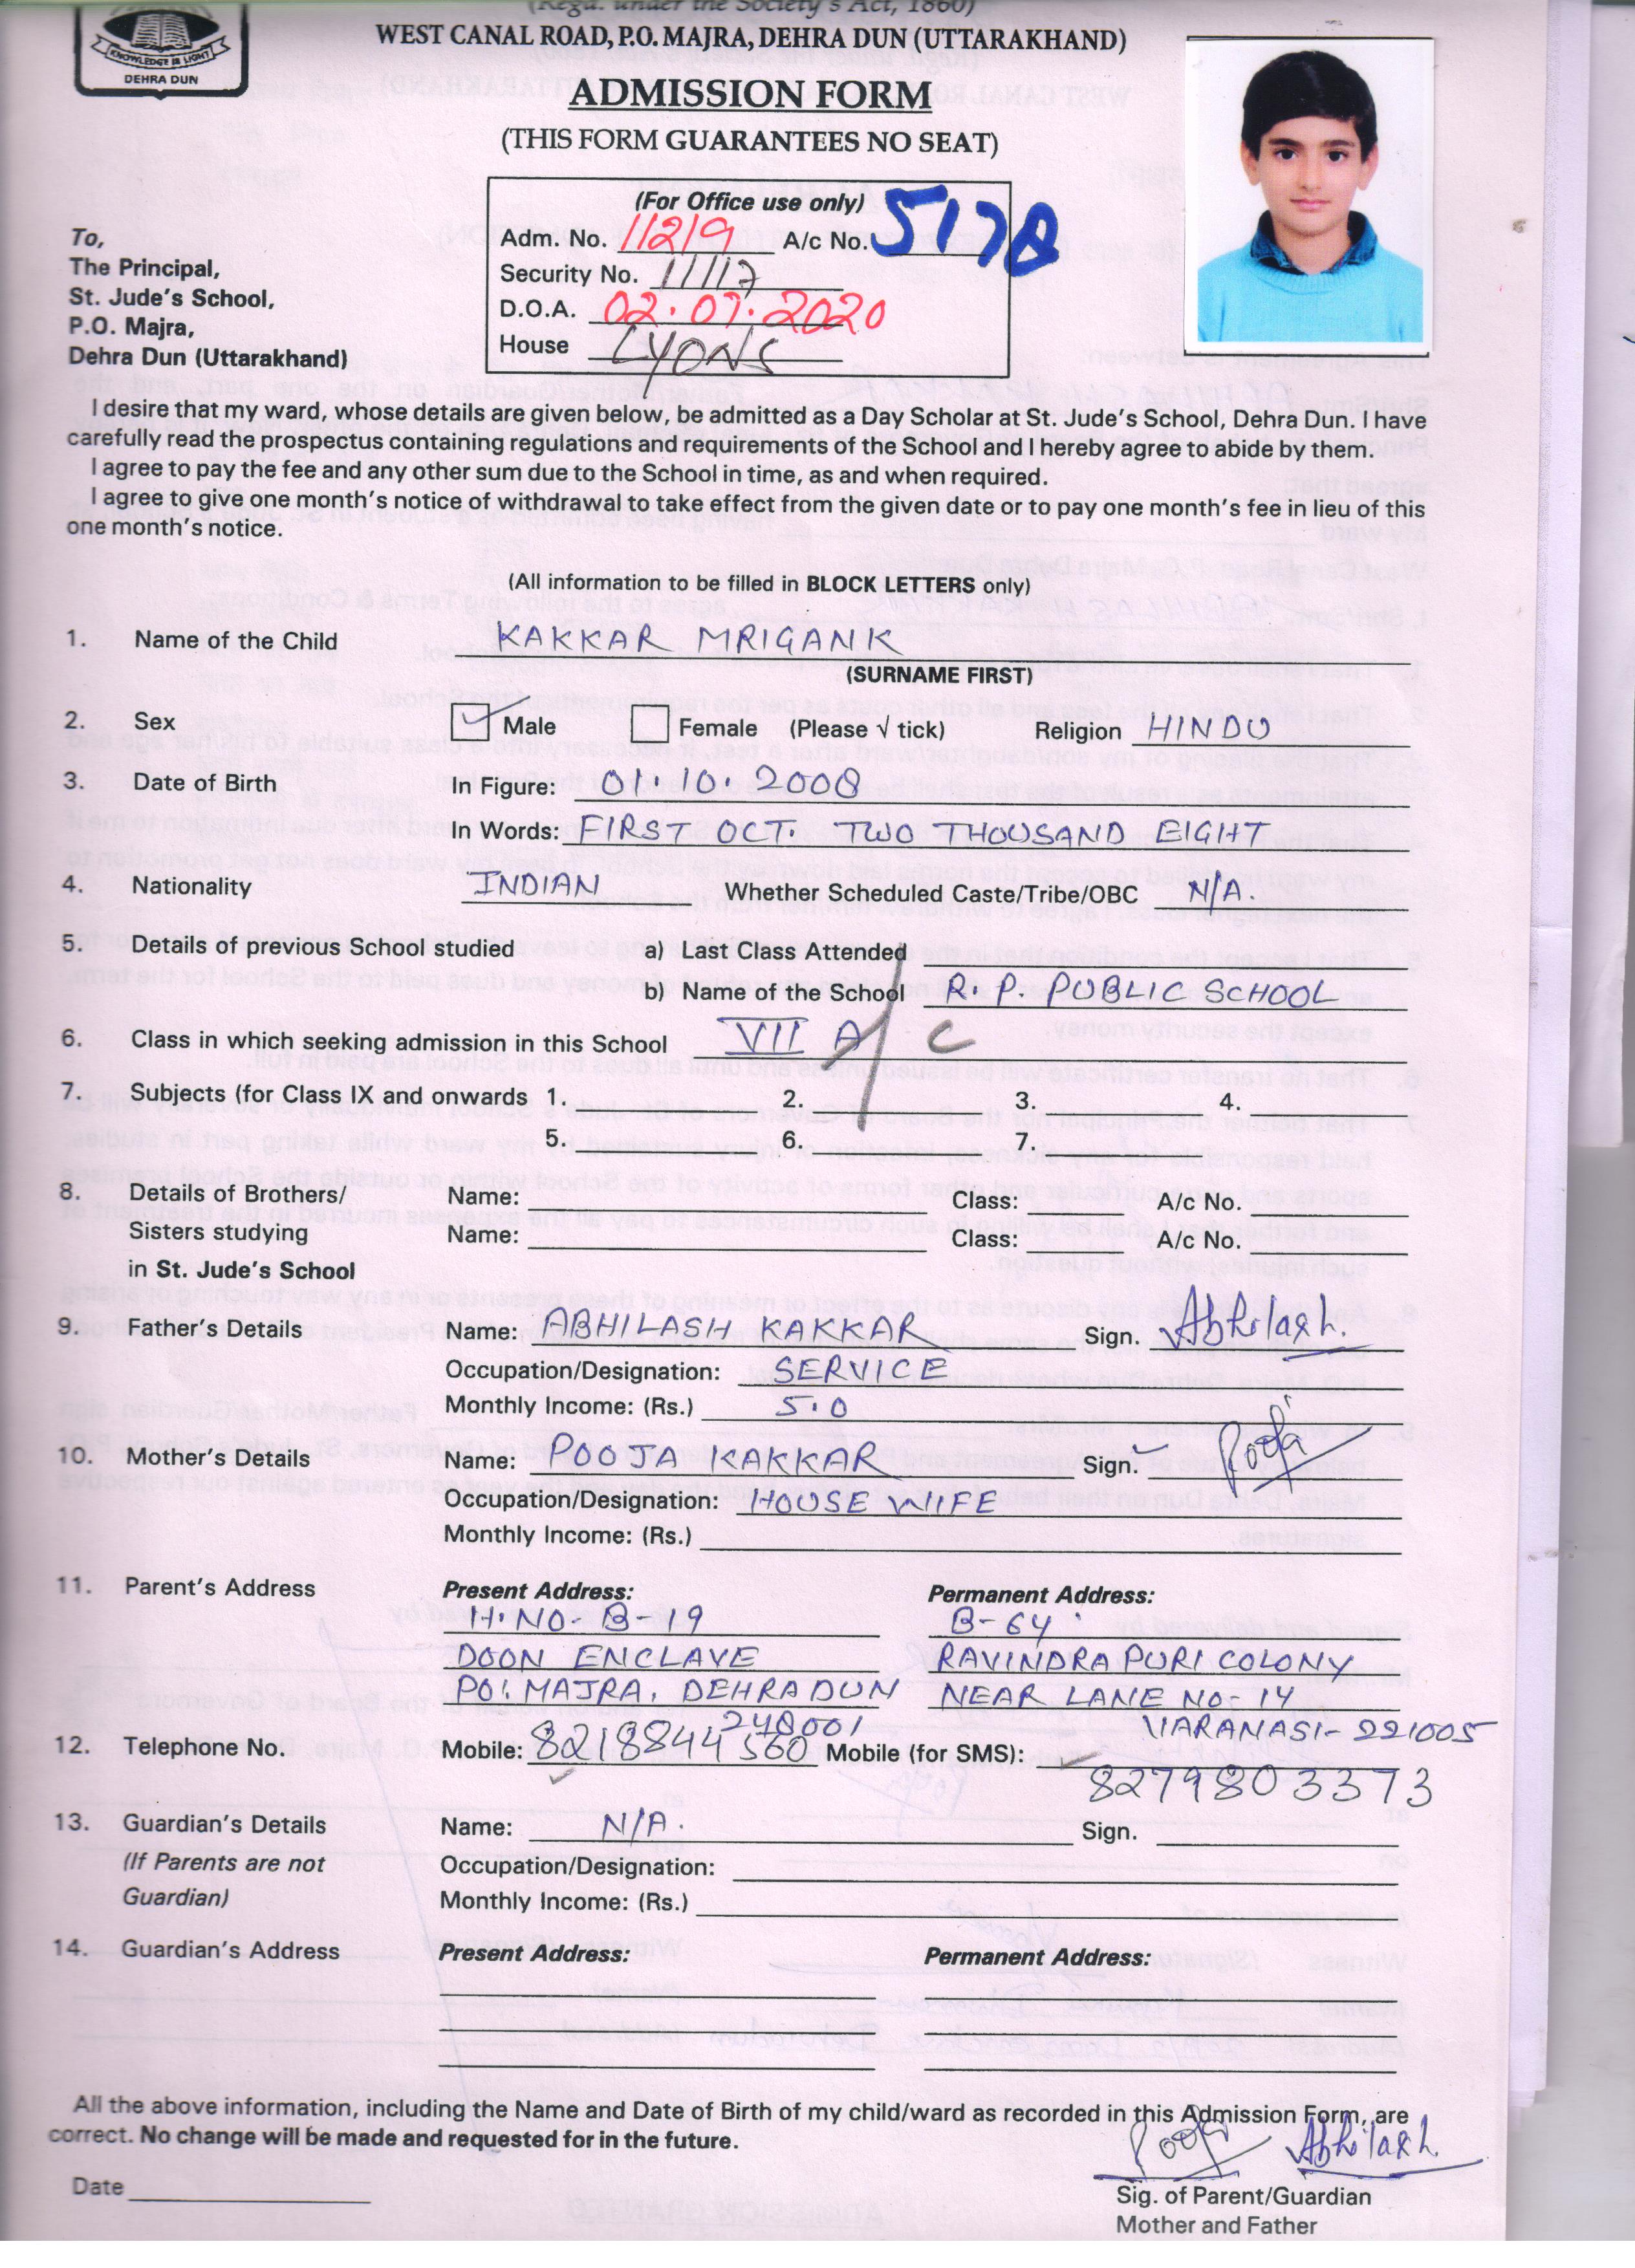 (Regd. under the Society's Act, 1860)
WEST CANAL ROAD, P.O. MAJRA, DEHRA DUN (UTTARAKHAND)
KNOWLEDGE IS LIGHT
DEHRA DUN
ADMISSION FORM
(THIS FORM GUARANTEES NO SEAT)
(For Office use only)
Adm. No. 11219 A/c No. 5178
Security No. 11117
D.O.A. 02.07.2020
House LYONS
To,
The Principal,
St. Jude's School,
P.O. Majra,
Dehra Dun (Uttarakhand)
I desire that my ward, whose details are given below, be admitted as a Day Scholar at St. Jude's School, Dehra Dun. I have
carefully read the prospectus containing regulations and requirements of the School and I hereby agree to abide by them.
I agree to pay the fee and any other sum due to the School in time, as and when required.
I agree to give one month's notice of withdrawal to take effect from the given date or to pay one month's fee in lieu of this
one month's notice.
(All information to be filled in BLOCK LETTERS only)
1. Name of the Child KAKKAR MRIGANK
(SURNAME FIRST)
2. Sex Male Female (Please √ tick) Religion HINDU
3. Date of Birth In Figure: 01.10.2008
In Words: FIRST OCT. TWO THOUSAND EIGHT
4. Nationality INDIAN Whether Scheduled Caste/Tribe/OBC N/A.
5. Details of previous School studied a) Last Class Attended
b) Name of the School R.P. PUBLIC SCHOOL
6. Class in which seeking admission in this School VII A / C
7. Subjects (for Class IX and onwards 1. 2. 3. 4.
5. 6. 7.
8. Details of Brothers/ Name: Class: A/c No.
Sisters studying Name: Class: A/c No.
in St. Jude's School
9. Father's Details Name: ABHILASH KAKKAR Sign. Abhilash.
Occupation/Designation: SERVICE
Monthly Income: (Rs.) 5.0
10. Mother's Details Name: POOJA KAKKAR Sign. Pooja
Occupation/Designation: HOUSE WIFE
Monthly Income: (Rs.)
11. Parent's Address Present Address: Permanent Address:
H.NO- B-19 B-64
DOON ENCLAVE RAVINDRA PURI COLONY
PO. MAJRA, DEHRADUN NEAR LANE NO-14
248001 VARANASI-221005
12. Telephone No. Mobile: 8218844560 Mobile (for SMS):
8279803373
13. Guardian's Details Name: N/A. Sign.
(If Parents are not Occupation/Designation:
Guardian) Monthly Income: (Rs.)
14. Guardian's Address Present Address: Permanent Address:
All the above information, including the Name and Date of Birth of my child/ward as recorded in this Admission Form, are
correct. No change will be made and requested for in the future.
Pooja Abhilash.
Date
Sig. of Parent/Guardian
Mother and Father